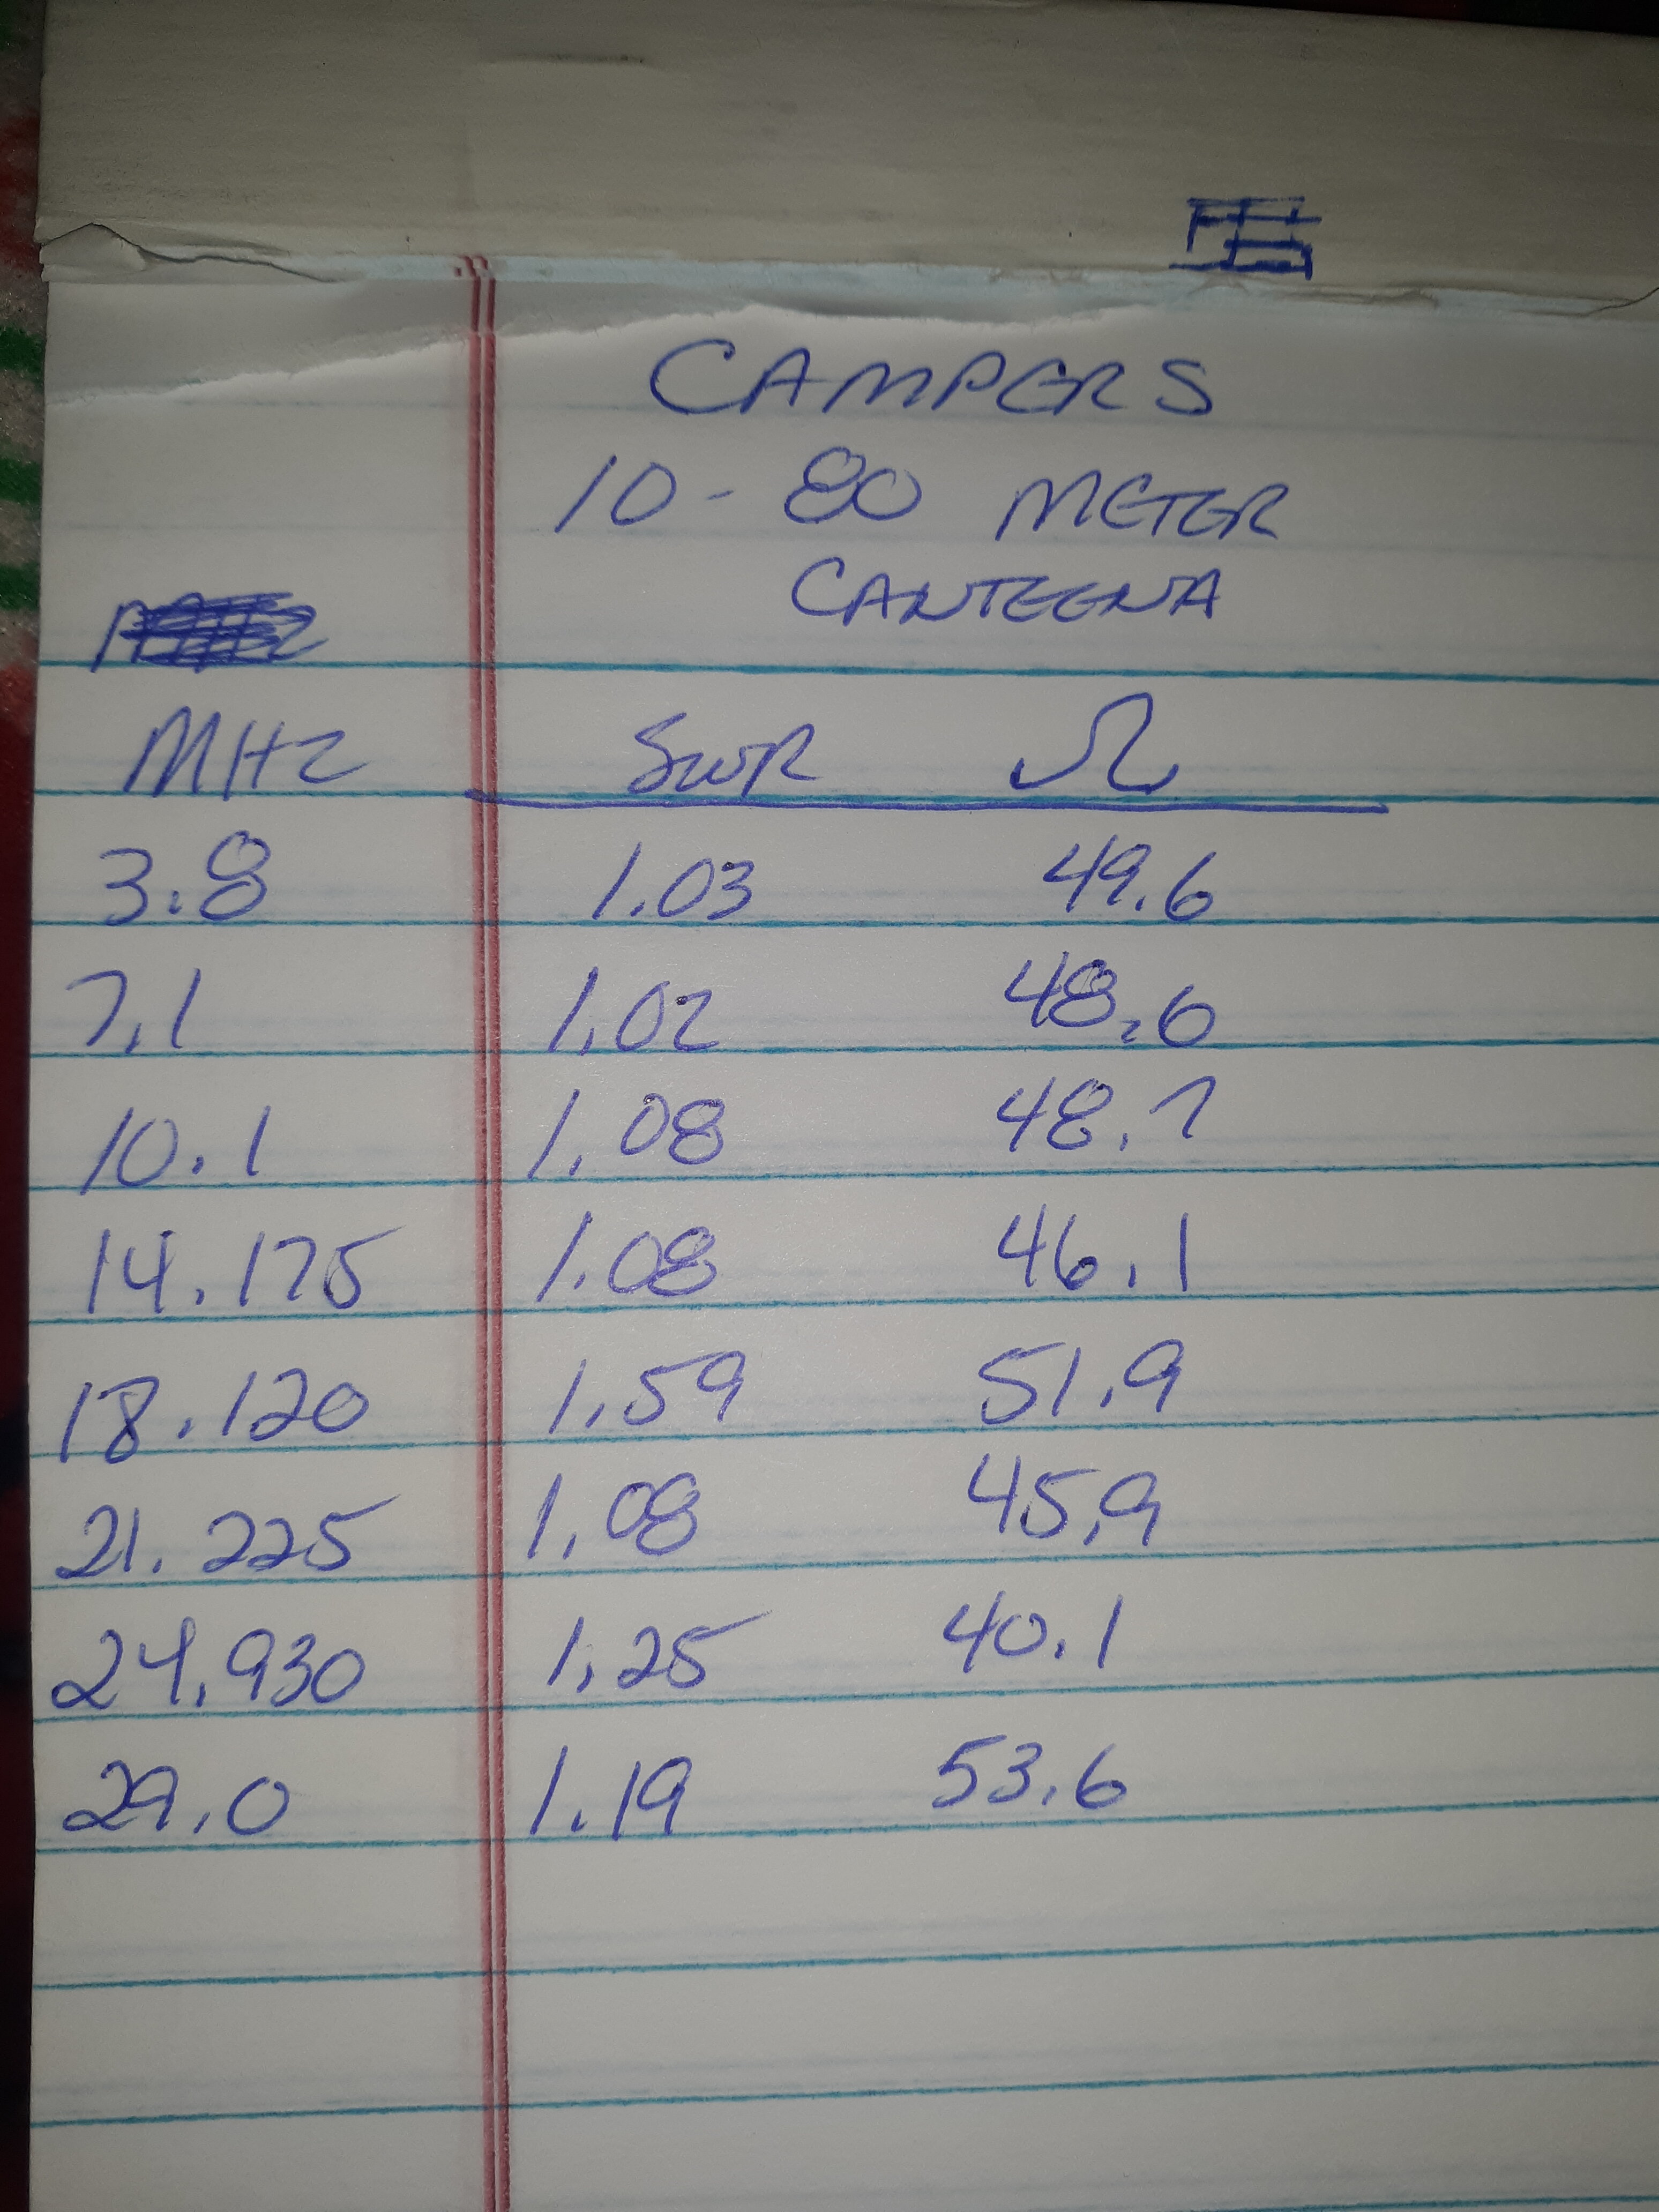 CAMPERS
10-80 METER
CANTEENA
MHZ SWR Ω
3.8 1.03 49.6
7.1 1.02 48.6
10.1 1.08 48.7
14.175 1.08 46.1
18.120 1.59 51.9
21.225 1.08 45.9
24.930 1.25 40.1
29.0 1.19 53.6